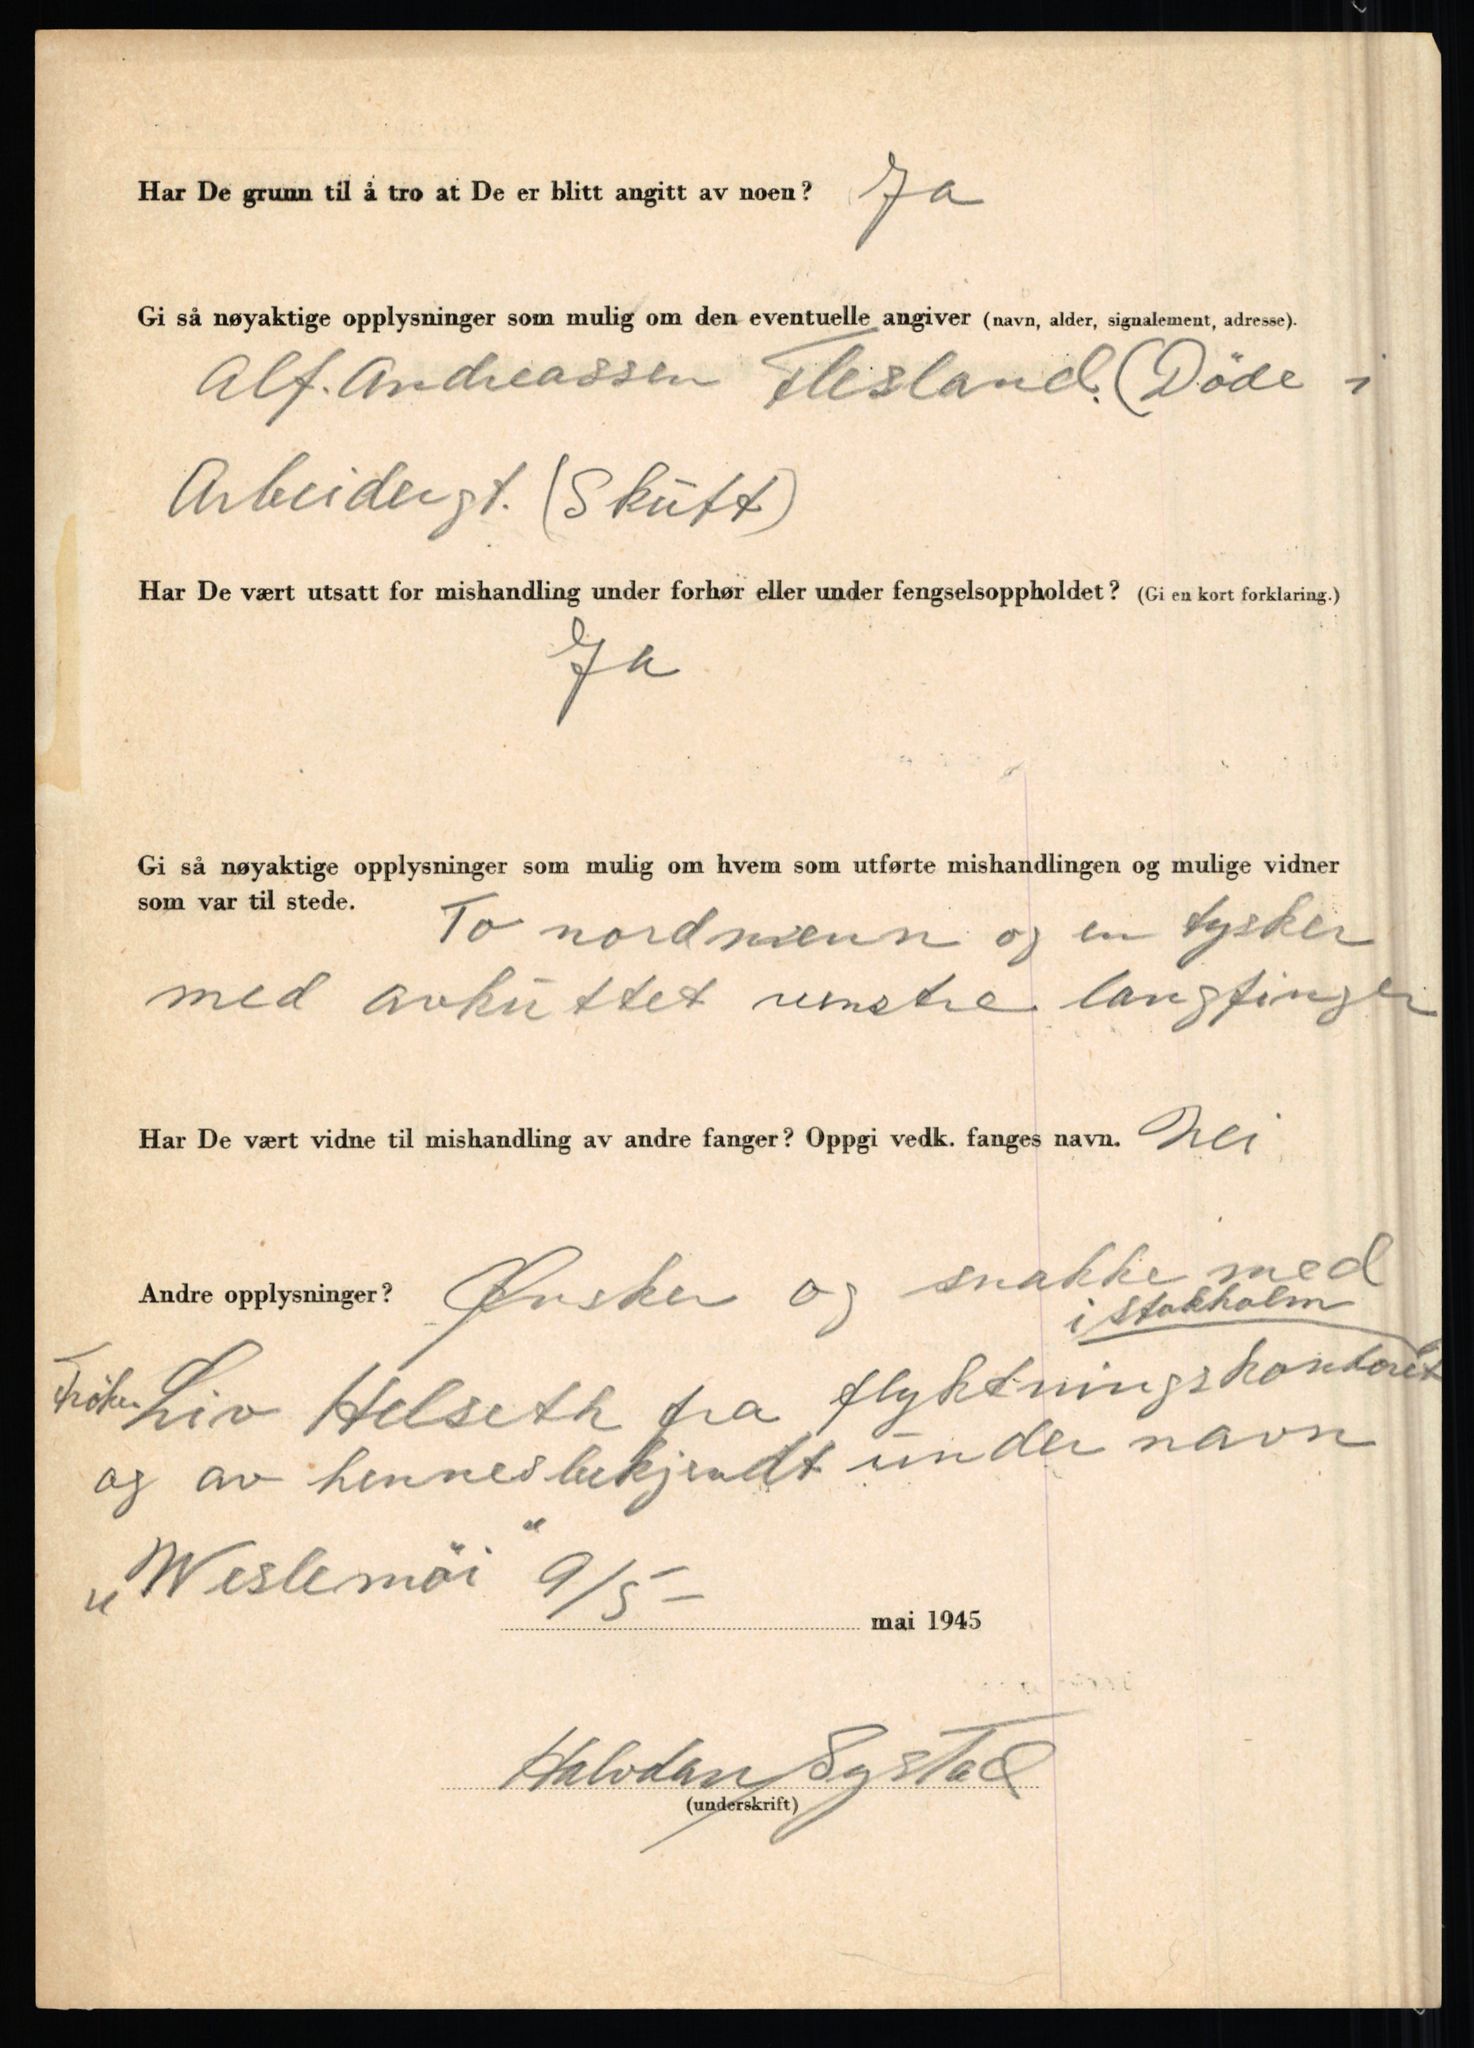 Har De grunn til å tro at De er blitt angitt av noen? Ja
Gi så nøyaktige opplysninger som mulig om den eventuelle angiver (navn, alder, signalement, adresse).
Alf. Andreassen Flesland. (Døde i
Arbeidergt. (Skutt)
Har De vært utsatt for mishandling under forhør eller under fengselsoppholdet? (Gi en kort forklaring.)
Ja
Gi så nøyaktige opplysninger som mulig om hvem som utførte mishandlingen og mulige vidner
som var til stede. To nordmenn og en tysker
med avkuttet venstre langfinger
Har De vært vidne til mishandling av andre fanger? Oppgi vedk. fanges navn. Nei
Andre opplysninger? Ønsker og snakke med
i Stokholm
Frøken Liv Helseth fra flyktningskontoret
og av hennes bekjendt under navn
„Weslemöi“ 9/5-
mai 1945
Halvdan Systad
(underskrift)